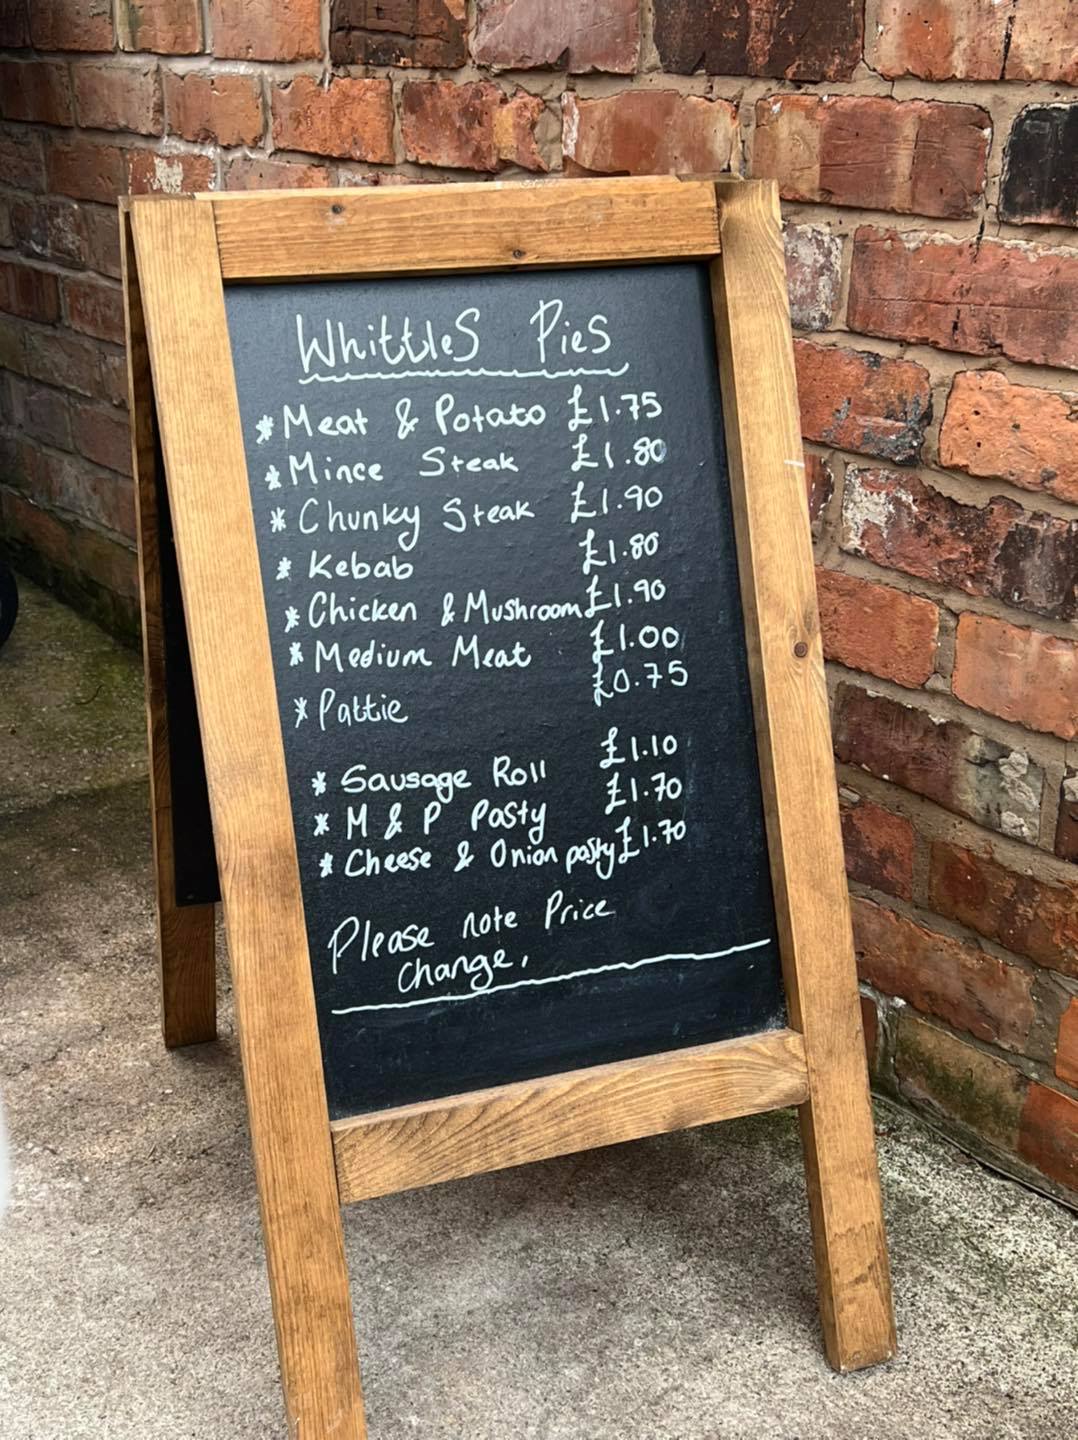 Whittles Pies
* Meat & Potato £1.75
* Mince Steak £1.80
* Chunky Steak £1.90
* Kebab £1.80
* Chicken & Mushroom £1.90
* Medium Meat £1.00
* Pattie £0.75
* Sausage Roll £1.10
* M & P Pasty £1.70
* Cheese & Onion pasty £1.70
Please note Price
change,